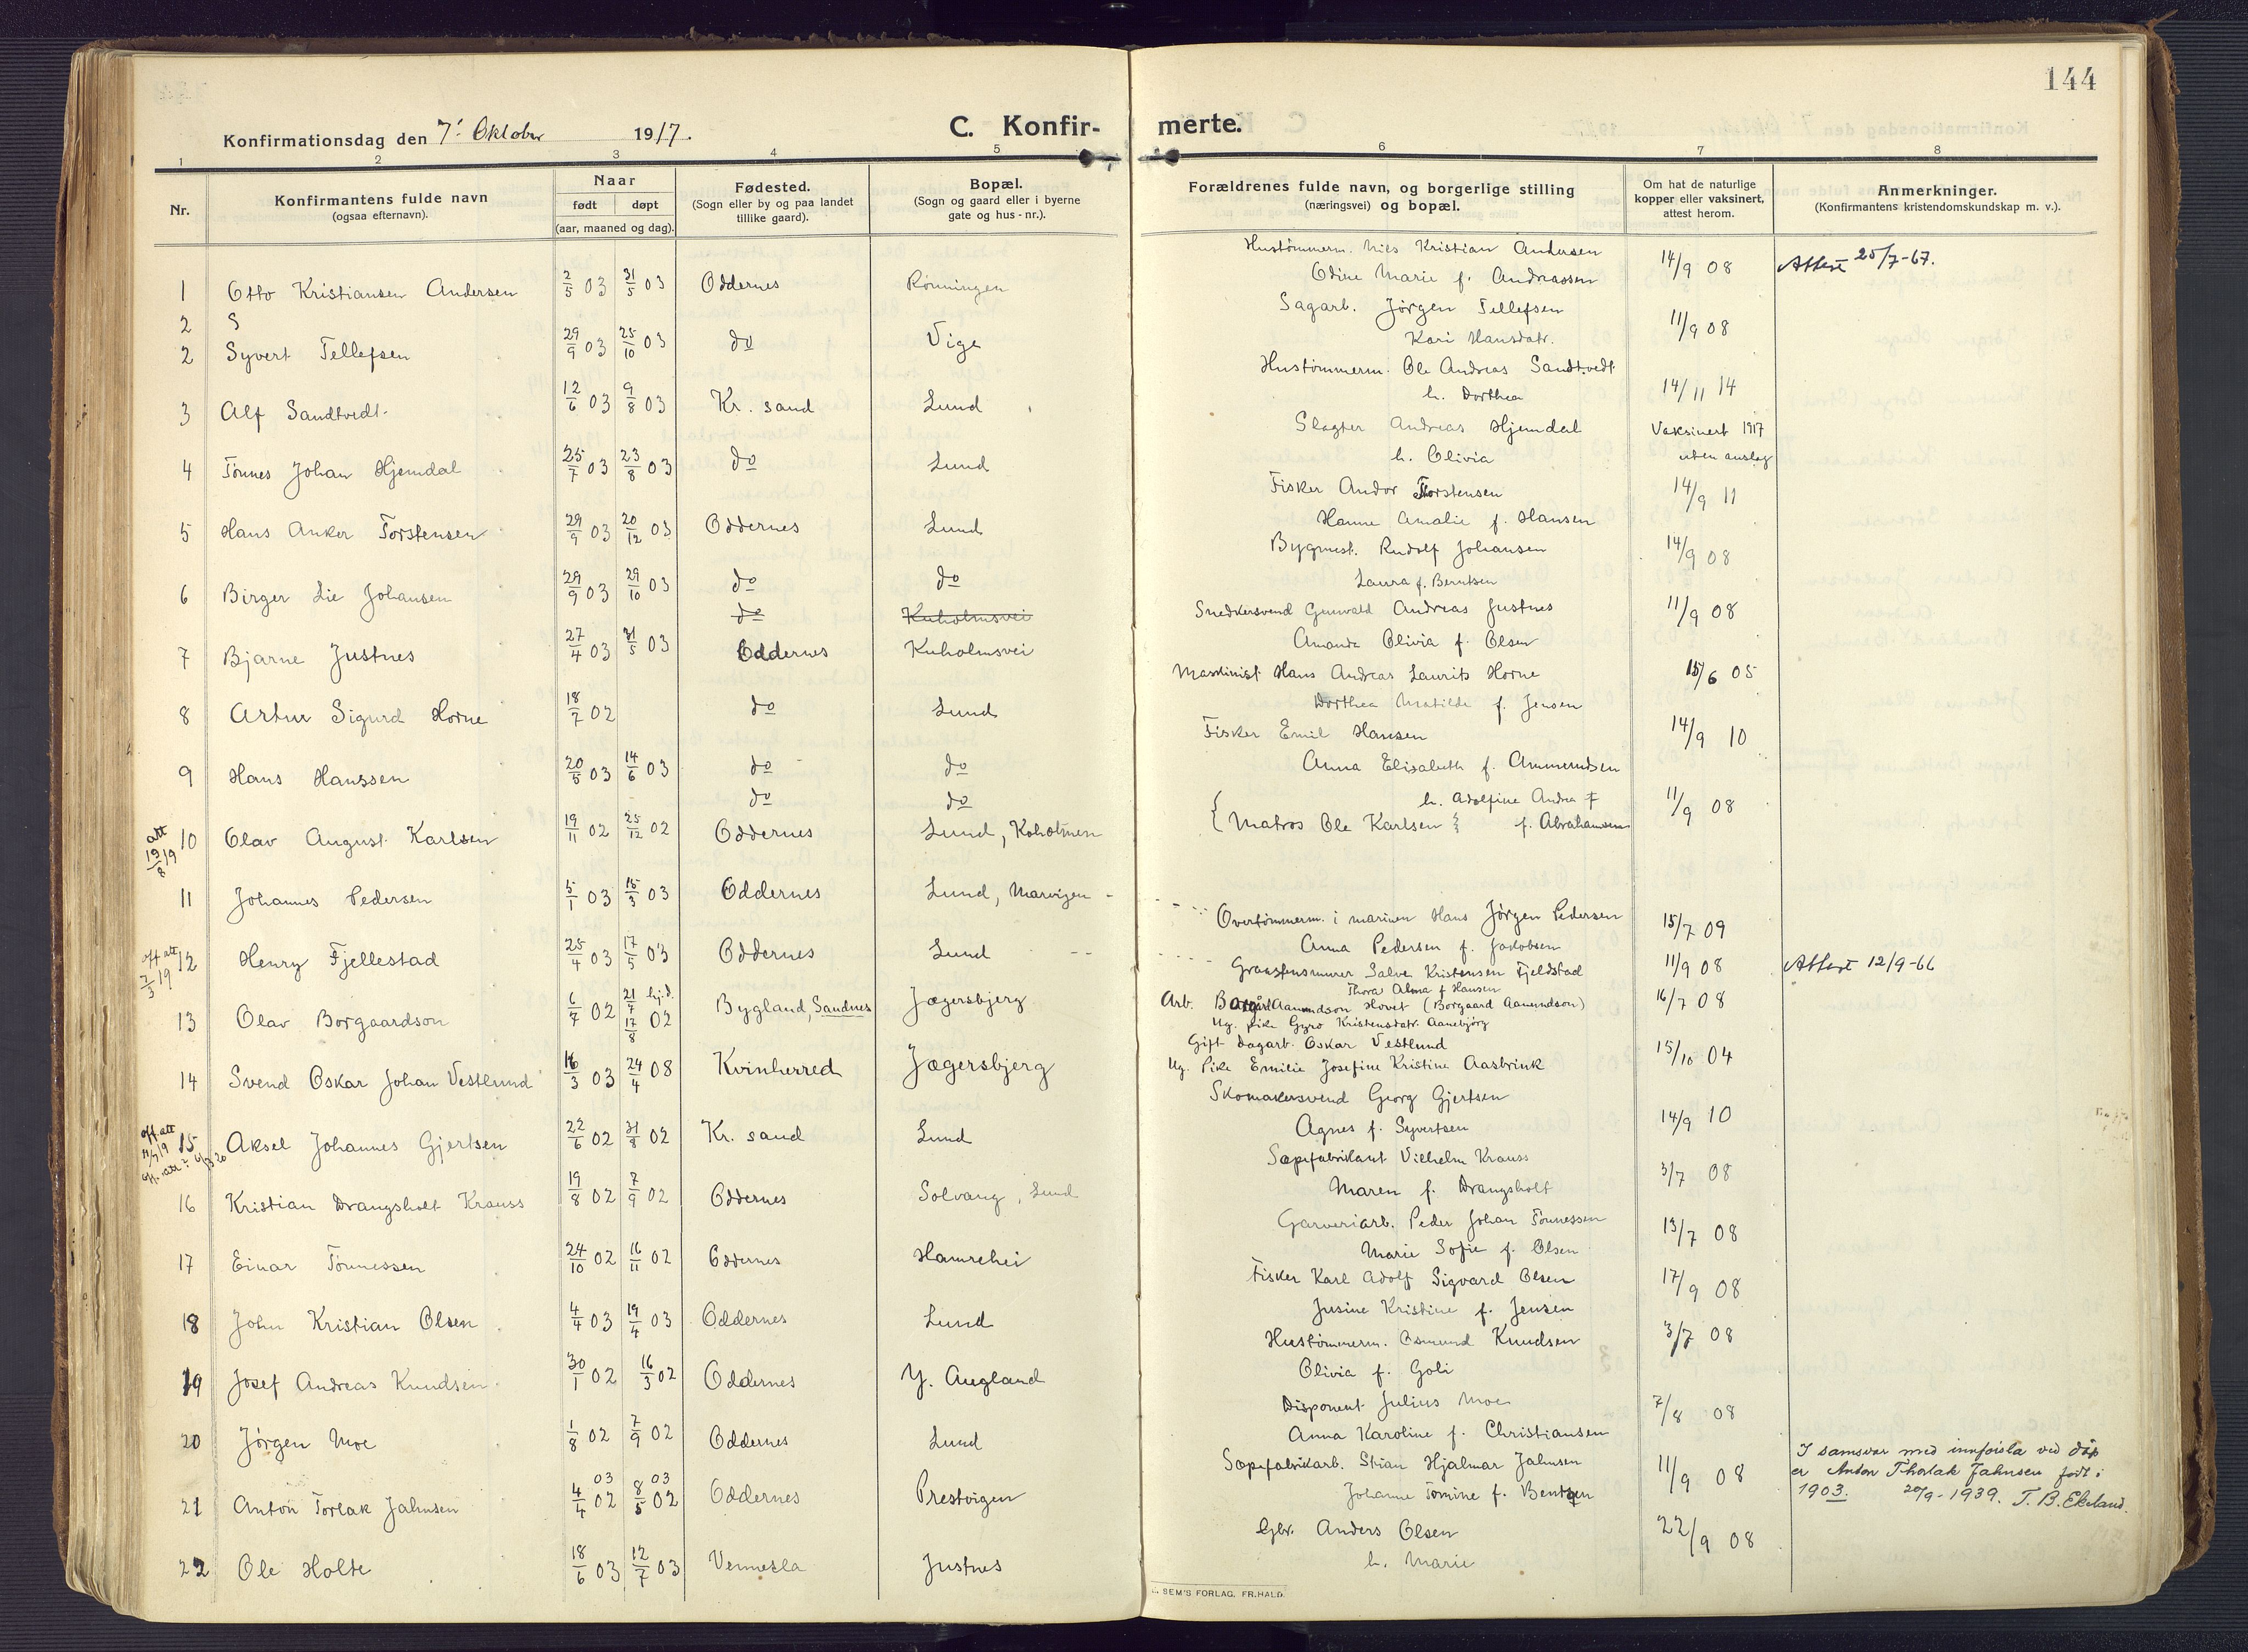 144
Konfirmationsdag den 7' Oktober 1917.
C. Konfir-
merte.
1 2 3 4 5 6 7 8
Nr.
Konfirmantens fulde navn
(ogsaa efternavn).
Naar
født døpt
(aar, maaned og dag).
Fødested.
(Sogn eller by og paa landet
tillike gaard).
Bopæl.
(Sogn og gaard eller i byerne
gate og hus-nr.).
Forældrenes fulde navn, og borgerlige stilling
(næringsvei) og bopæl.
Om hat de naturlige
kopper eller vaksinert,
attest herom.
Anmerkninger.
(Konfirmantens kristendomskundskap m. v.).
1 Otto Kristiansen Andersen 2/5 03 31/5 03 Oddernes Rønningen
Hustømmerm. Nils Kristian Andersen 14/9 08 Attest 25/7-67.
Odine Marie f. Andreassen
2 S
2 Syvert Tellefsen 29/9 03 25/10 03 do Vige
Sagarb. Jørgen Tellefsen 11/9 08
Kari Hansdatr.
3 Alf Sandtvedt 12/6 03 9/8 03 Kr. sand Lund
Hustømmerm. Ole Andreas Sandtvedt 14/11 14
h. Dorthea
4 Tønnes Johan Hjemdal 25/7 03 23/8 03 do Lund
Slagter Andreas Hjemdal Vaksinert 1917
h. Olivia uten anslag
5 Hans Anker Torstensen 29/9 03 20/12 03 Oddernes Lund
Fisker Andor Torstensen 14/9 11
Hanne Amalie f. Hansen
6 Birger Lie Johansen 29/9 03 29/10 03 do do
Bygmest. Rudolf Johansen 14/9 08
Laura f. Berntsen
do Kuholmsvei
7 Bjarne Justnes 27/4 03 31/5 03 Oddernes Kuholmsvei
Snedkersvend Gunvald Andreas Justnes 11/9 08
Amanda Olivia f. Olsen
8 Artur Sigurd Horne 18/7 02 do Lund
Maskinist Hans Andreas Laurits Horne 15/6 05
Dorthea Matilde f. Jensen
9 Hans Hanssen 20/5 03 14/6 03 do do
Fisker Emil Hansen 14/9 10
Anna Elisabeth f. Ammundsen
do do
att 19/8 19
10 Olav August Karlsen 19/11 02 25/12 02 Oddernes Lund, Kuholmen
h. Adolfine Andrea f 11/9 08
{ Matros Ole Karlsen } f. Abrahamsen
11 Johannes Pedersen 5/1 03 15/3 03 Oddernes Lund, Marvigen
Overtømmerm. i marinen Hans Jørgen Pedersen 15/7 09
Anna Pedersen f. Jakobsen
off att 7/3 19
12 Henry Fjellestad 25/4 03 17/5 03 Oddernes Lund
Graastensmurer Salve Kristensen Fjeldstad 11/9 08 Attest 12/9-66
Thora Alma f Hansen
13 Olav Borgaardson 6/7 02 21/7 hj.d. 17/8 02 Bygland, Sandnes Jægersbjerg
Arb. Borgård Aamundson Hovet (Borgaard Aamundson) 16/7 08
Ug. pike Gyro Kristensdatr. Aanebjørg
14 Svend Oskar Johan Vestlund 16/3 03 24/4 08 Kvinherred Jægersbjerg
Gift dagarb. Oskar Vestlund 15/10 04
Ug. Pike Emilie Josefine Kristine Aasbrink
off. att 11/7 19
off. att 20
15 Aksel Johannes Gjertsen 22/6 02 31/8 02 Kr. sand Lund
Skomakersvend Georg Gjertsen 14/9 10
Agnes f. Syvertsen
16 Kristian Drangsholt Krauss 19/8 02 7/9 02 Oddernes Solvang, Lund
Sæpefabrikant Vilhelm Krauss 3/7 08
Maren f. Drangsholt
17 Einar Tønnessen 24/10 02 16/11 02 Oddernes Hamrehei
Garveriarb. Peder Johan Tønnessen 13/7 08
Marie Sofie f. Olsen
18 John Kristian Olsen 4/4 03 19/4 03 Oddernes Lund
Fisker Karl Adolf Sigvard Olsen 17/9 08
Jusine Kristine f. Jensen
19 Josef Andreas Knudsen 30/1 02 16/3 02 Oddernes Y. Augland
Hustømmerm. Osmund Knudsen 3/7 08
Olivia f. Goli
20 Jørgen Moe 1/8 02 7/9 02 Oddernes Lund
Disponent Julius Moe 7/8 08
Anna Karoline f. Christiansen
21 Anton Torlak Jahnsen 4/4 02 03 8/5 02 03 Oddernes Prestvigen
Sæpefabrikarb. Stian Hjalmar Jahnsen 11/9 08
Johanne Tomine f. Bentzen
I samsvar med innførsla ved dåp
er Anton Thorlak Jahnsen født i
1903. 20/9-1939. T. B. Ekeland.
22 Ole Holte 18/6 03 12/7 03 Vennesla Justnes
Gbr. Anders Olsen 22/9 08
h. Marie
SEM'S FORLAG, FR.HALD.